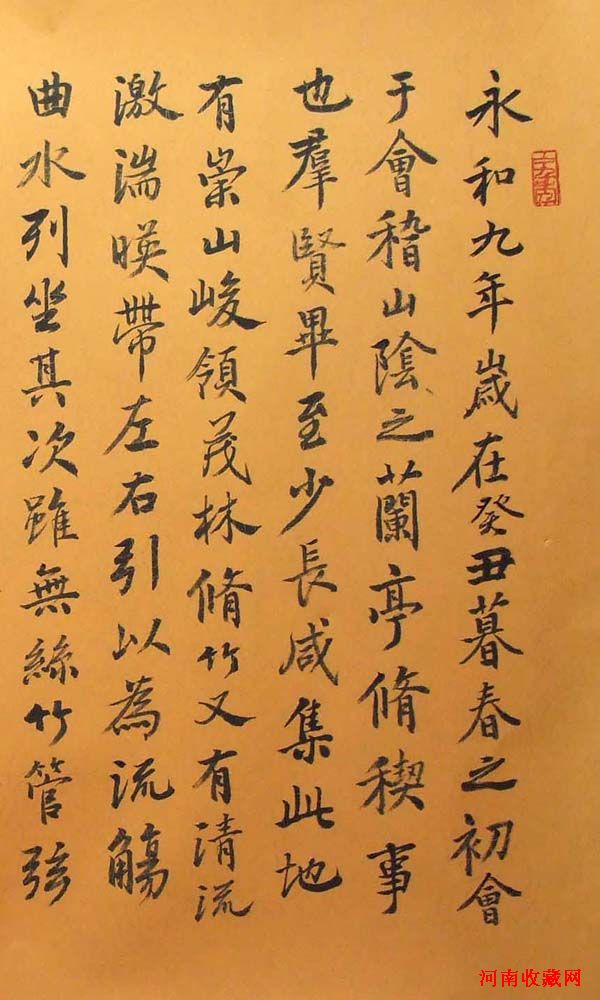 永和九年歲在癸丑暮春之初會
于會稽山陰之蘭亭脩稧事
也羣賢畢至少長咸集此地
有崇山峻領茂林脩竹又有清流
激湍暎帶左右引以為流觴
曲水列坐其次雖無絲竹管弦
河南收藏网